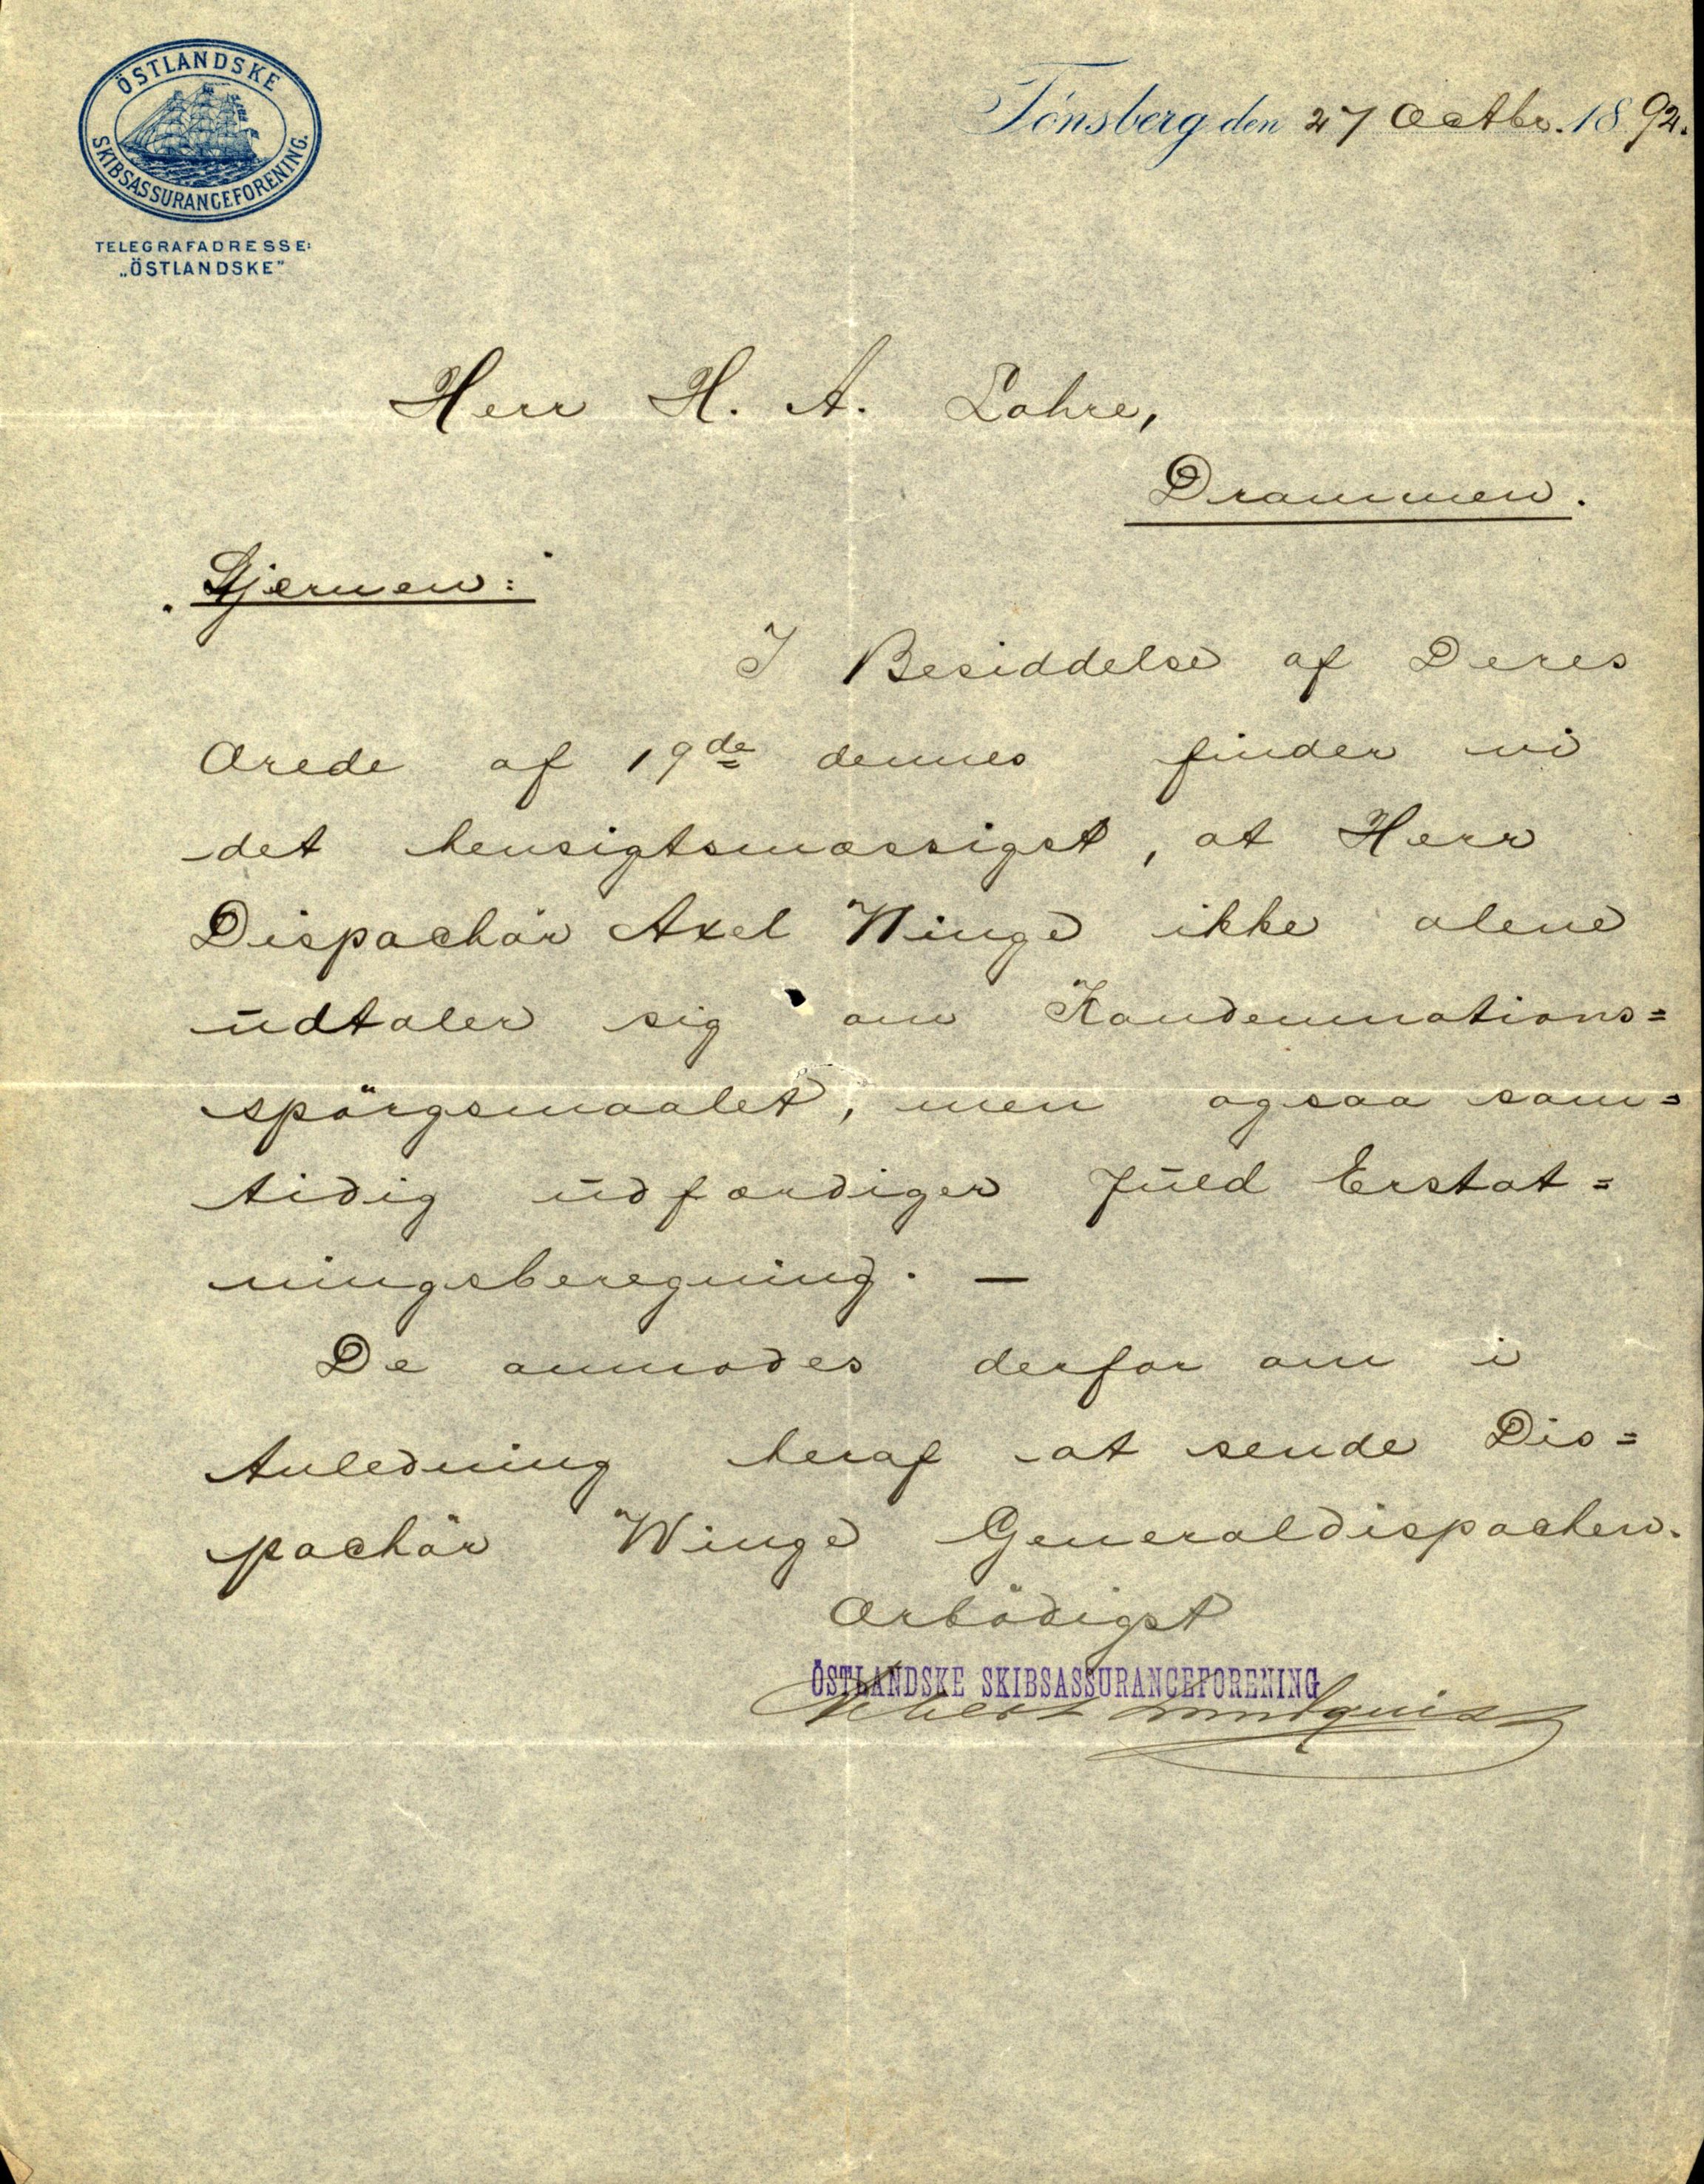 ÖSTLANDSKE
SKIBSASSURANCEFORENING.
TELEGRAFADRESSE:
„ÖSTLANDSKE”
Tönsberg den 27 Octbr. 1892.
Herr H. A. Lohre,
Drammen.
"Stjernen:"
I Besiddelse af Deres
Ærede af 19de dennes finder vi
det hensigtsmæssigst, at Herr
Dispachör Axel Winge ikke alene
udtaler sig om Kondemnations=
spörgsmaalet, men ogsaa sam=
tidig udfærdiger fuld Erstat=
ningsberegning. —
De anmodes derfor om i
Anledning heraf at sende Dis=
pachör Winge Generaldispachen.
Ærbödigst
ÖSTLANDSKE SKIBSASSURANCEFORENING